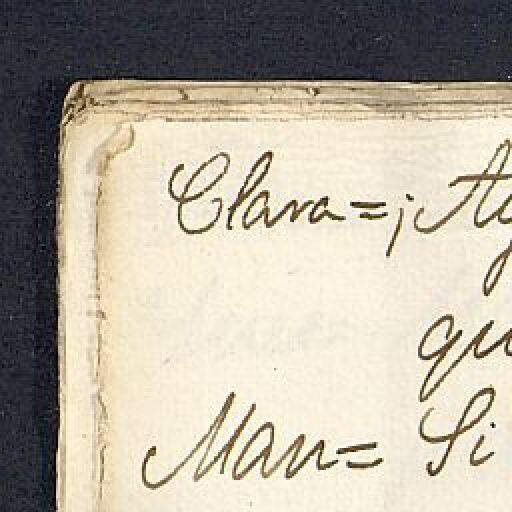 Clara=¡Ay
qu
Man= Si